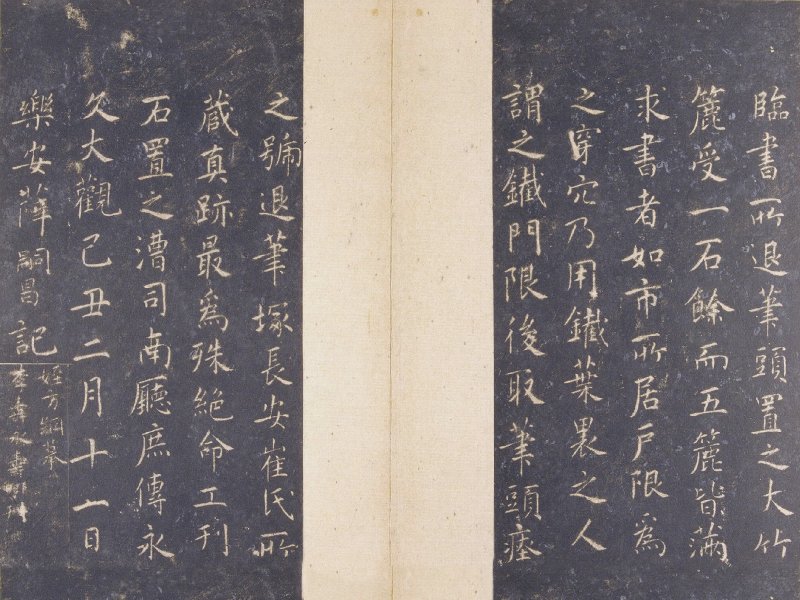 臨書所退筆頭置之大竹
簏受一石餘而五簏皆滿
求書者如市所居戶限為
之穿穴乃用鐵葉裹之人
謂之鐵門限後取筆頭瘞
之號退筆塚長安崔氏所
蔵真跡最為殊絕命工刊
石置之漕司南廳庶傳永
久大觀己丑二月十一日
樂安薛嗣昌記
姪方綱摹
李壽永壽明刊